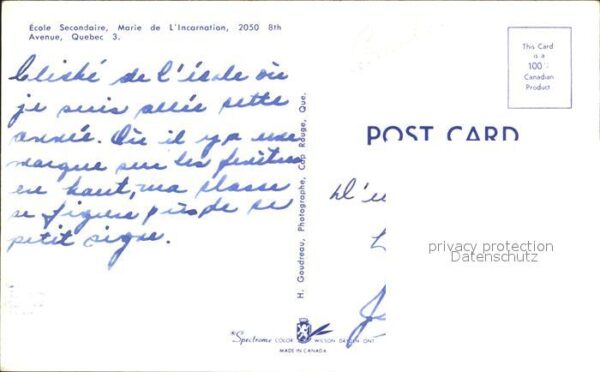 École Secondaire, Marie de L'Incarnation, 2050 8th
Avenue, Quebec 3.
Cliché de l'école où
je suis allée cette
année. Où il y a une
marque sur les fenêtres
en haut, ma classe
se figure près de ce
petit signe.
H. Goudreau, Photographe, Cap Rouge, Que.
This Card
is a
100%
Canadian
Product
POST CARD
D'u
privacy protection
Datenschutz
Spectrome COLOR WILSON DRYDEN-ONT
MADE IN CANADA